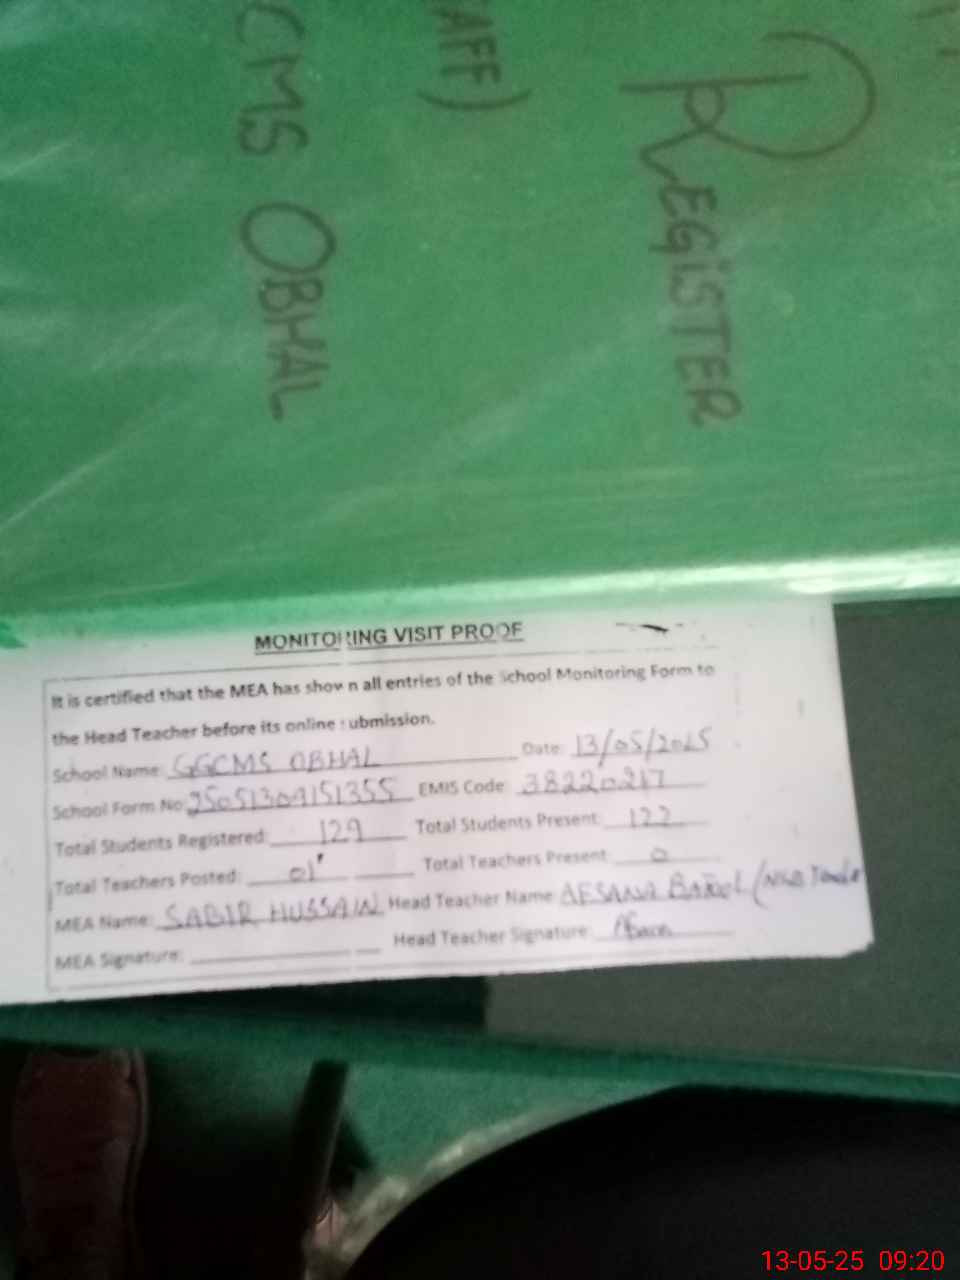 REGISTER
AFF)
CMS OBHAL
MONITORING VISIT PROOF
It is certified that the MEA has shown all entries of the School Monitoring Form to
the Head Teacher before its online submission.
School Name: GGCMS OBHAL Date: 13/05/2025
School Form No: 25051309151355 EMIS Code: 38220217
Total Students Registered: 129 Total Students Present: 122
Total Teachers Posted: 01 Total Teachers Present: 0
MEA Name: SABIR HUSSAIN Head Teacher Name: AFSANA
MEA Signature: Head Teacher Signature:
13-05-25 09:20